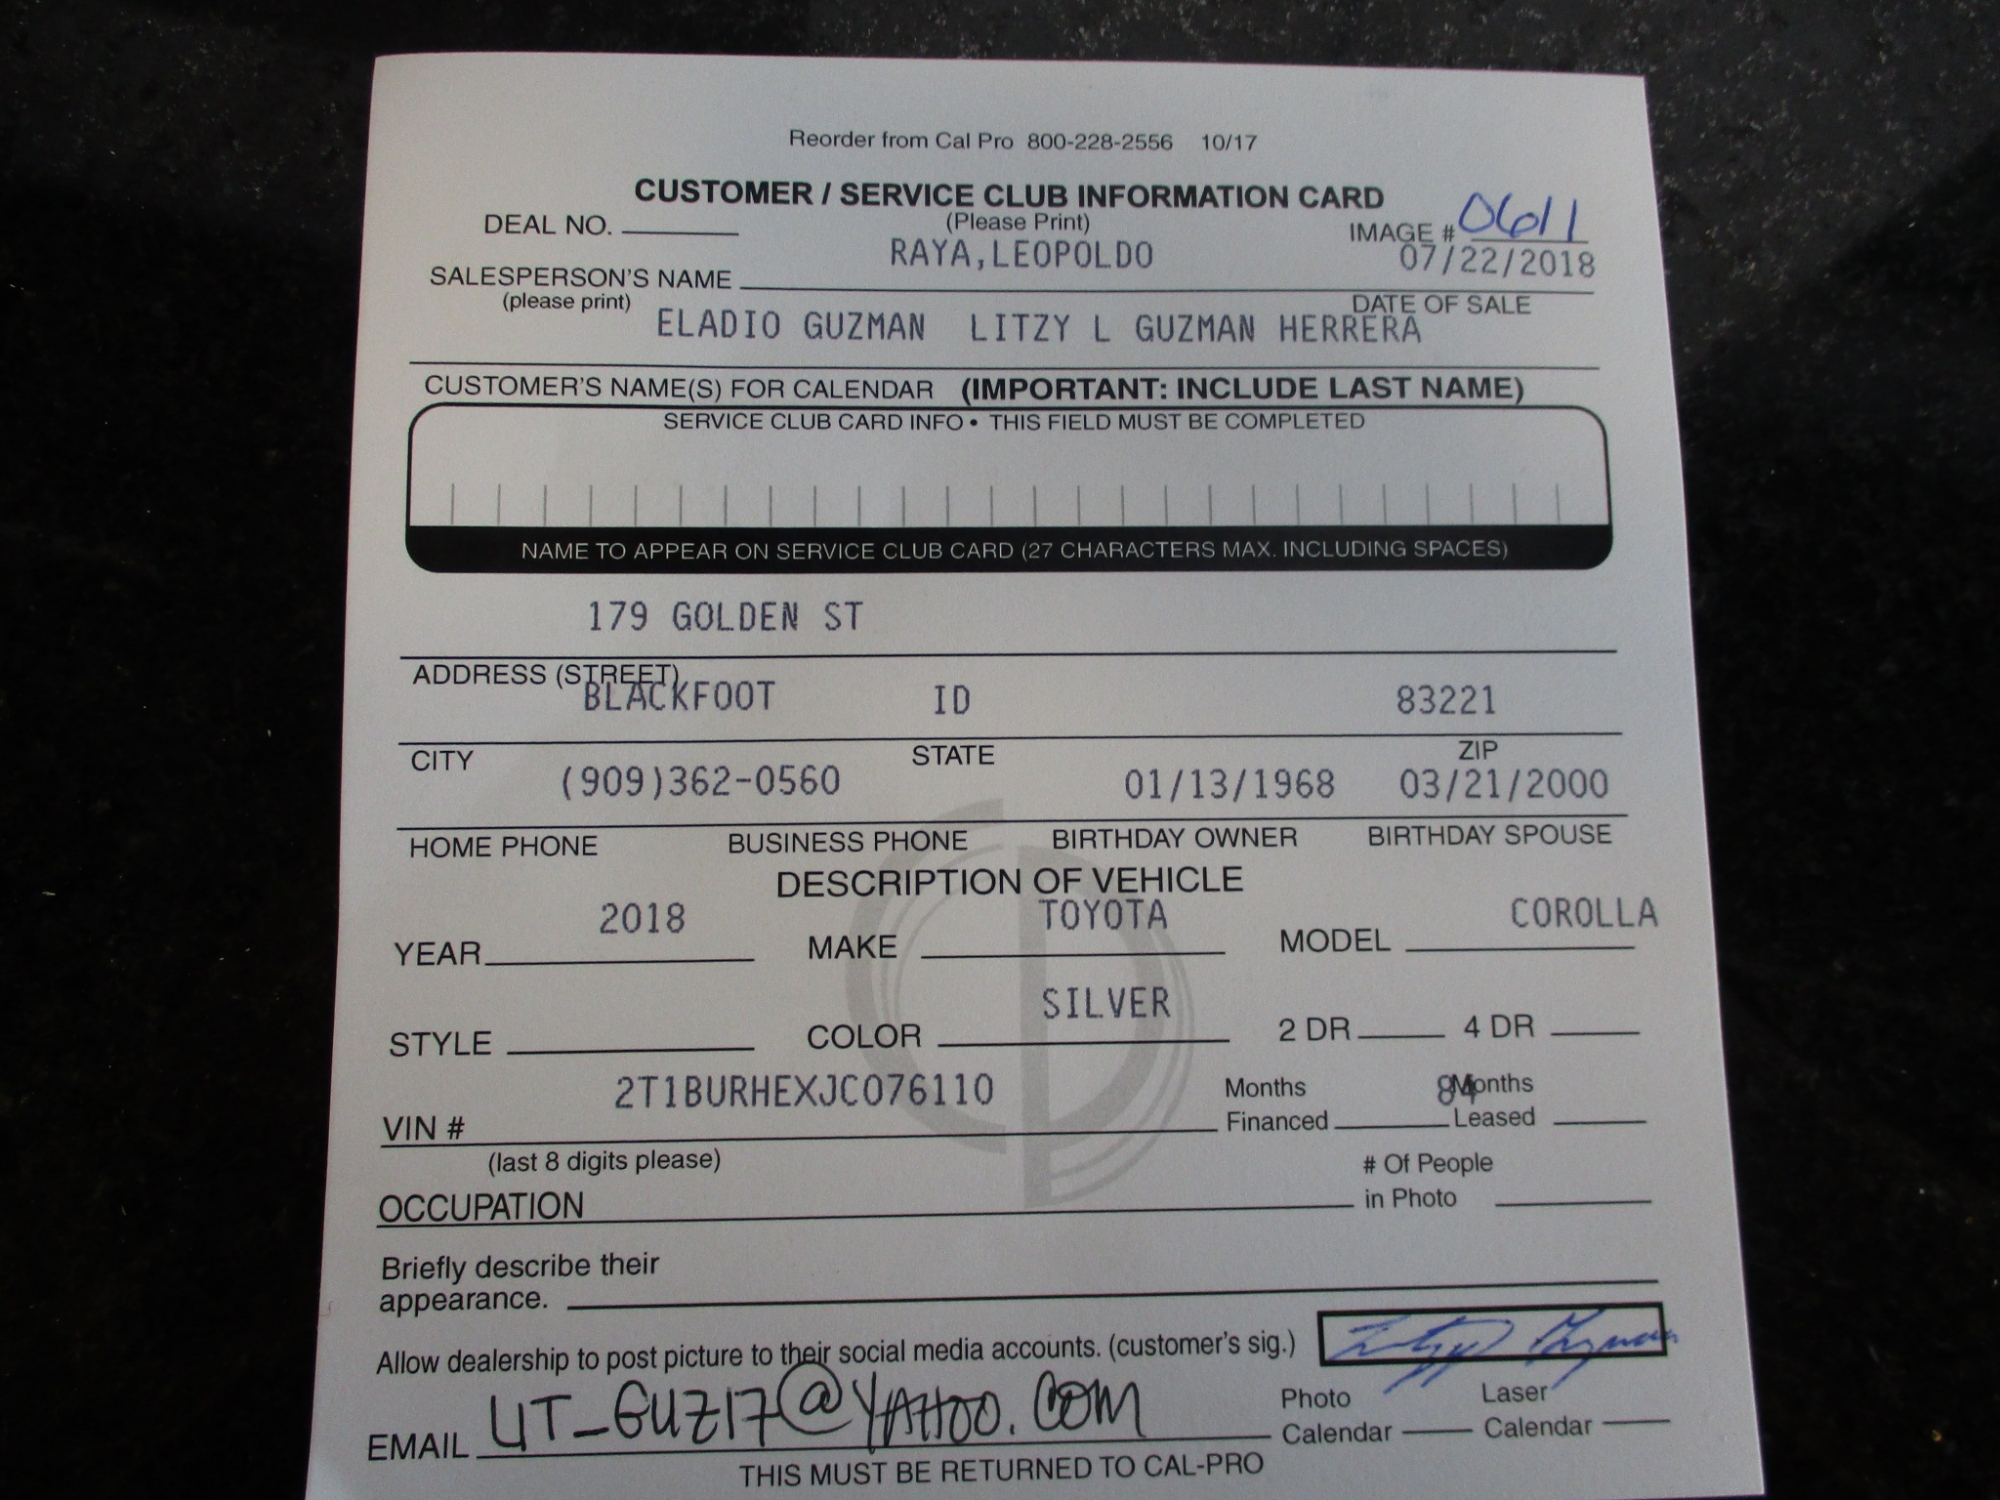 Reorder from Cal Pro 800-228-2556 10/17
CUSTOMER / SERVICE CLUB INFORMATION CARD
DEAL NO. (Please Print) IMAGE # 0611
RAYA,LEOPOLDO 07/22/2018
SALESPERSON'S NAME
(please print) DATE OF SALE
ELADIO GUZMAN LITZY L GUZMAN HERRERA
CUSTOMER'S NAME(S) FOR CALENDAR (IMPORTANT: INCLUDE LAST NAME)
SERVICE CLUB CARD INFO • THIS FIELD MUST BE COMPLETED
NAME TO APPEAR ON SERVICE CLUB CARD (27 CHARACTERS MAX. INCLUDING SPACES)
179 GOLDEN ST
ADDRESS (STREET)
BLACKFOOT ID 83221
CITY STATE ZIP
(909)362-0560 01/13/1968 03/21/2000
HOME PHONE BUSINESS PHONE BIRTHDAY OWNER BIRTHDAY SPOUSE
DESCRIPTION OF VEHICLE
2018 TOYOTA COROLLA
YEAR MAKE MODEL
SILVER
STYLE COLOR 2 DR 4 DR
2T1BURHEXJC076110 Months 84 Months
VIN # Financed Leased
(last 8 digits please) # Of People
OCCUPATION in Photo
Briefly describe their
appearance.
Allow dealership to post picture to their social media accounts. (customer's sig.) Litzy Guzman
Photo Laser
EMAIL LIT_GUZ17@YAHOO.COM Calendar Calendar
THIS MUST BE RETURNED TO CAL-PRO